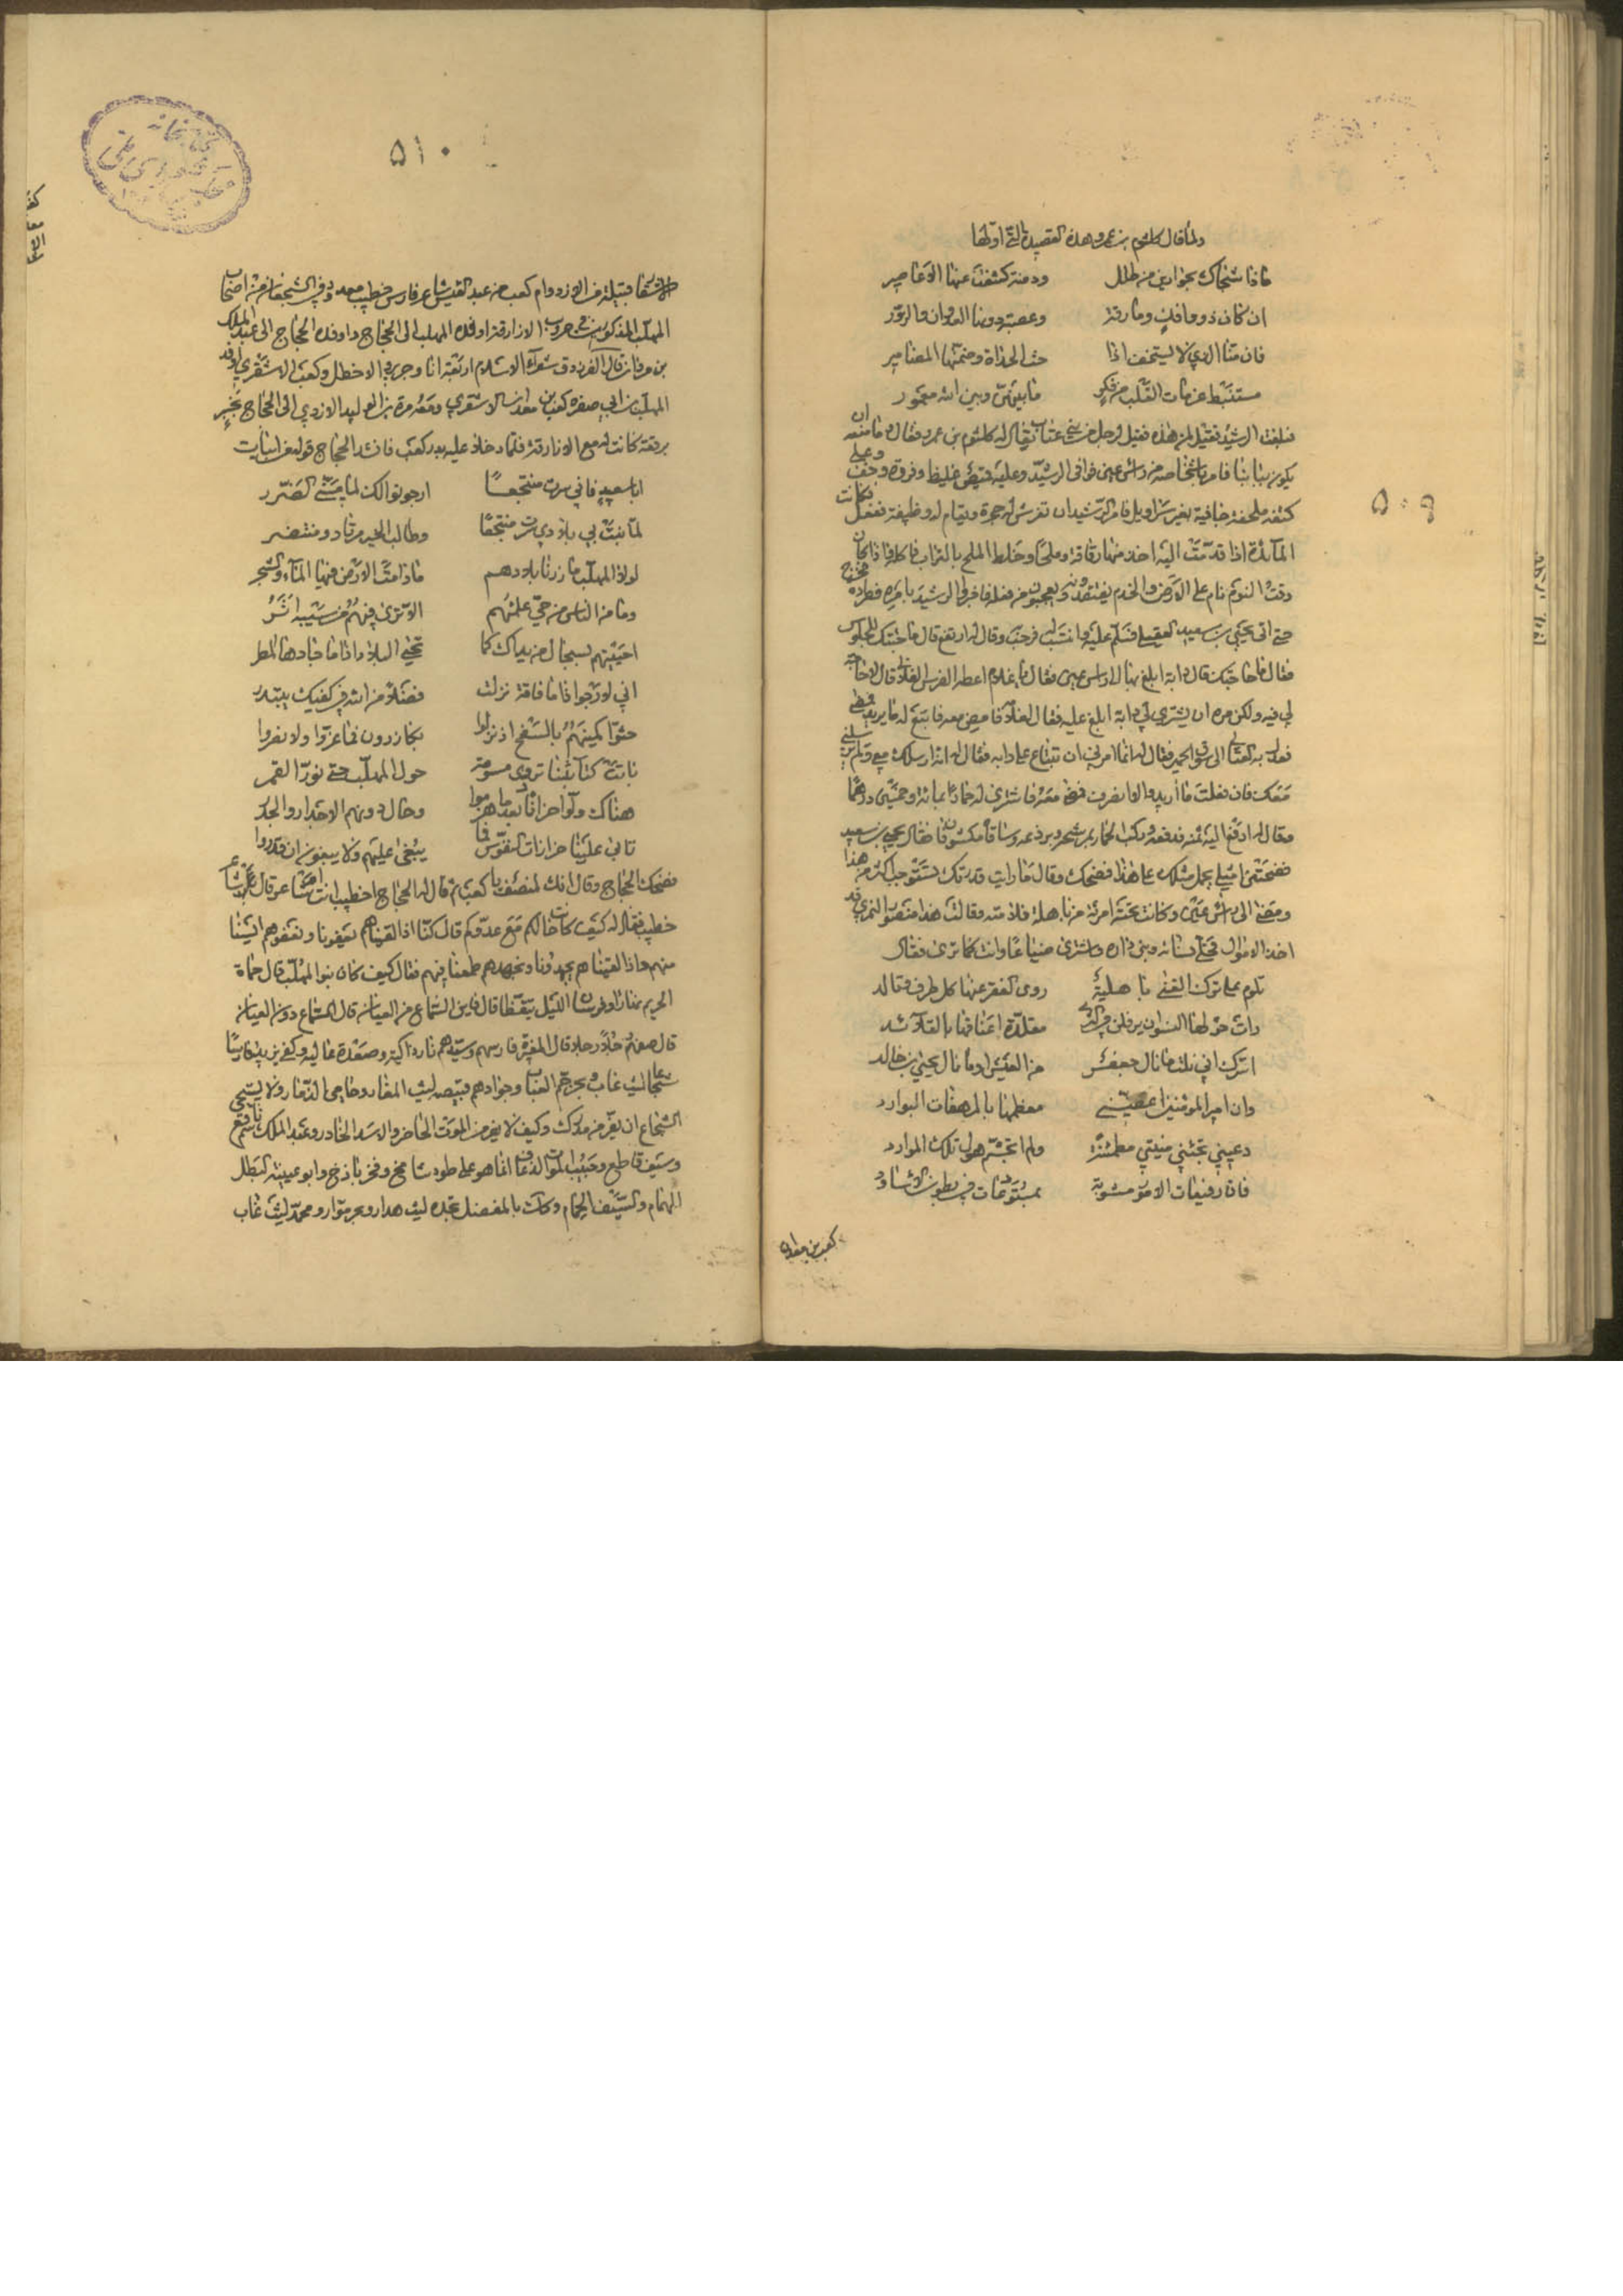 ٥٠٩
ولما قال كلثوم بن عمرو هذه القصيدة التي اولها
ماذا شجاك بحوارين من طلل ودمنة كشفت عنها الاعاصير
ان كان ذووا فلت ومارقة وعصبة دونها العدوان والزور
فان منا الذي لا يستحث اذا حث الجذاة وضمتها المضامير
مستنبط عزمات القلب من فكر ما بينهن وبين الله معمور
فبلغت الرشيد فقيل لمن هذه فقيل لرجل من بني عتاب يقال له كلثوم بن عمرو فقال وما منعه ان
يكون ببابنا فامر باشخاصه من راس عين فوافى الرشيد وعليه قميص غليظ وفروة وخف وعلى
كتفه ملحفة جافية بغير سراويل فامر الرشيد ان تفرش له حجرة ويقام له وظيفة ففعل فكانت
المائدة اذا قدمت اليه اخذ منها رقاقة وملحا وخلط الملح بالتراب فاكله فاذا كان
وقت النوم نام على الارض والخدم يفتقدونه ويعجبون من فعله فاخبر الرشيد بامره فطرده فخرج
حتى اتى يحيى بن سعيد العقيلي فسلم عليه وانتسب له فرحب وقال له ارتفع قال ما جئتك للجلوس
فقال ما حاجتك قال دابة ابلغ بها الى راس عين فقال يا غلام اعطه الفرس الفلاني قال لا حاجة
لي فيه ولكن مره ان يشتري لي دابة ابلغ عليه فقال لغلامه امض معه فابتع له ما يريد فمضى
فعدل به العتابي الى سوق الحمير فقال له انما امرني ان تبتاع على دابه فقال له انه ارسلك معي ولم يرسلني
معك فان فعلت ما اريد والا انصرفت فمضى معه فاشترى له حمارا بمائة وخمسين درهما
وقال له ادفع اليه ثمنه فدفعه وركب الحمار بمرشحة وبرذعه وساقاه مكشوفان فقال يحيى بن سعيد
فضحتني امثلي يحمل مثلك على هذا فضحك وقال ما رايت قدرتك تستوجب اكثر من هذا
ومضى الى راس عين وكانت تحته امرئة من باهلة فلامته وقالت هذا منصور النمري قد
اخذ الاموال فحلى نسائه وبنى داره واشترى ضياعا وانت كما ترى فقال
تلوم على ترك الغنى باهلية روى الفقر عنها كل طرف وتالد
رات حولها النسوان يرفلن في الكسى مقلدة اعناقها بالقلائد
اسرك اني نلت ما نال جعفر من العيش او ما نال يحيى بن خالد
وان امير المؤمنين اغصني معضهما بالمرهفات البوارد
دعيني تجئني ميتتي مطمئنة ولم اتجشم هول تلك الموارد
فان رفيعات الامور مشوبة بمستودعات في بطون الاساود
كعب بن معدان
٥١٠
الاشقر قبيلة من الازد وام كعب من عبد القيس شاعر فارس خطيب معدود في الشجعان من اصحاب
المهلب المذكورين في حروب الازارقة اوفده المهلب الى الحجاج واوفده الحجاج الى عبد الملك
بن مروان قال الفرزدق شعراء الاسلام اربعة انا وجرير والاخطل وكعب الاشقري اوفد
المهلب بن ابي صفرة كعب بن معدان الاشقري ومعه مرة بن الوليد الازدي الى الحجاج بخبر
برقعة كانت له مع الازارقة فلما دخلا عليه بدر كعب فانشد الحجاج قوله من ابيات
ابا سعيد فاني سرت منتجعا ارجو نوالك لما مسني الضرر
لما نبت بي بلادي سرت منتجعا وطالب الخير مرتاد ومنتضر
لولا المهلب ما زرنا بلادهم ما دامت الارض فيها الماء والشجر
وما من الناس من حي علمتهم الا ترى فيهم من سيبه اثر
احييتهم بسجال من يداك كما تحيى البلاد اذا ما جادها المطر
اني لارجو اذا ما فاقة نزلت فضلا من الله في كفيك يبتدر
حثوا كمينهم بالسفح اذ نزلوا بكازرون فما عزوا ولا نصروا
باتت كتائبنا تردى مسومة حول المهلب حتى نور القمر
هناك ولوا حزانا بعد ما هزموا وحال دونهم الاجدار والجدر
تابى علينا حزازات النفوس فما يبغى عليهم ولا يبغون ان قدروا
فضحك الحجاج وقال انك لمنصف يا كعب ثم قال له الحجاج اخطيب انت ام شاعر قال شاعر
خطيب فقال له كيف كانت حالكم مع عدوكم قال كنا اذا لقيناهم بعفونا وبعفوهم ايسنا
منهم واذا لقيناهم بجهدنا وبجهدهم طمعنا فيهم فقال كيف كان بنوا المهلب قال حماة
الحريم نهارا وفرسان الليل تيقظا قال فاين السماع من العيان قال السماع دون العيان
قال صفهم رجلا رجلا قال المغيرة فارسهم وسيدهم نار ذاكية وصعدة عالية وكفى بيزيد فارسا
شجاعا ليث غاب وبحر جم العباب وجوادهم قبيصه ليث المغار وحامي الذمار ولا يستحي
الشجاع ان يفر من مدرك وكيف لا يفر من الموت الحاضر والاسد الخادر وعبد الملك سم ناقع
وسيف قاطع وحبيب الموت الذعاف انما هو على طود شامخ وفخر باذخ وابو عيينة البطل
الهمام والسيف الحسام وكفاك بالمفضل نجدة ليث هدار وبحر موار ومحمد ليث غاب